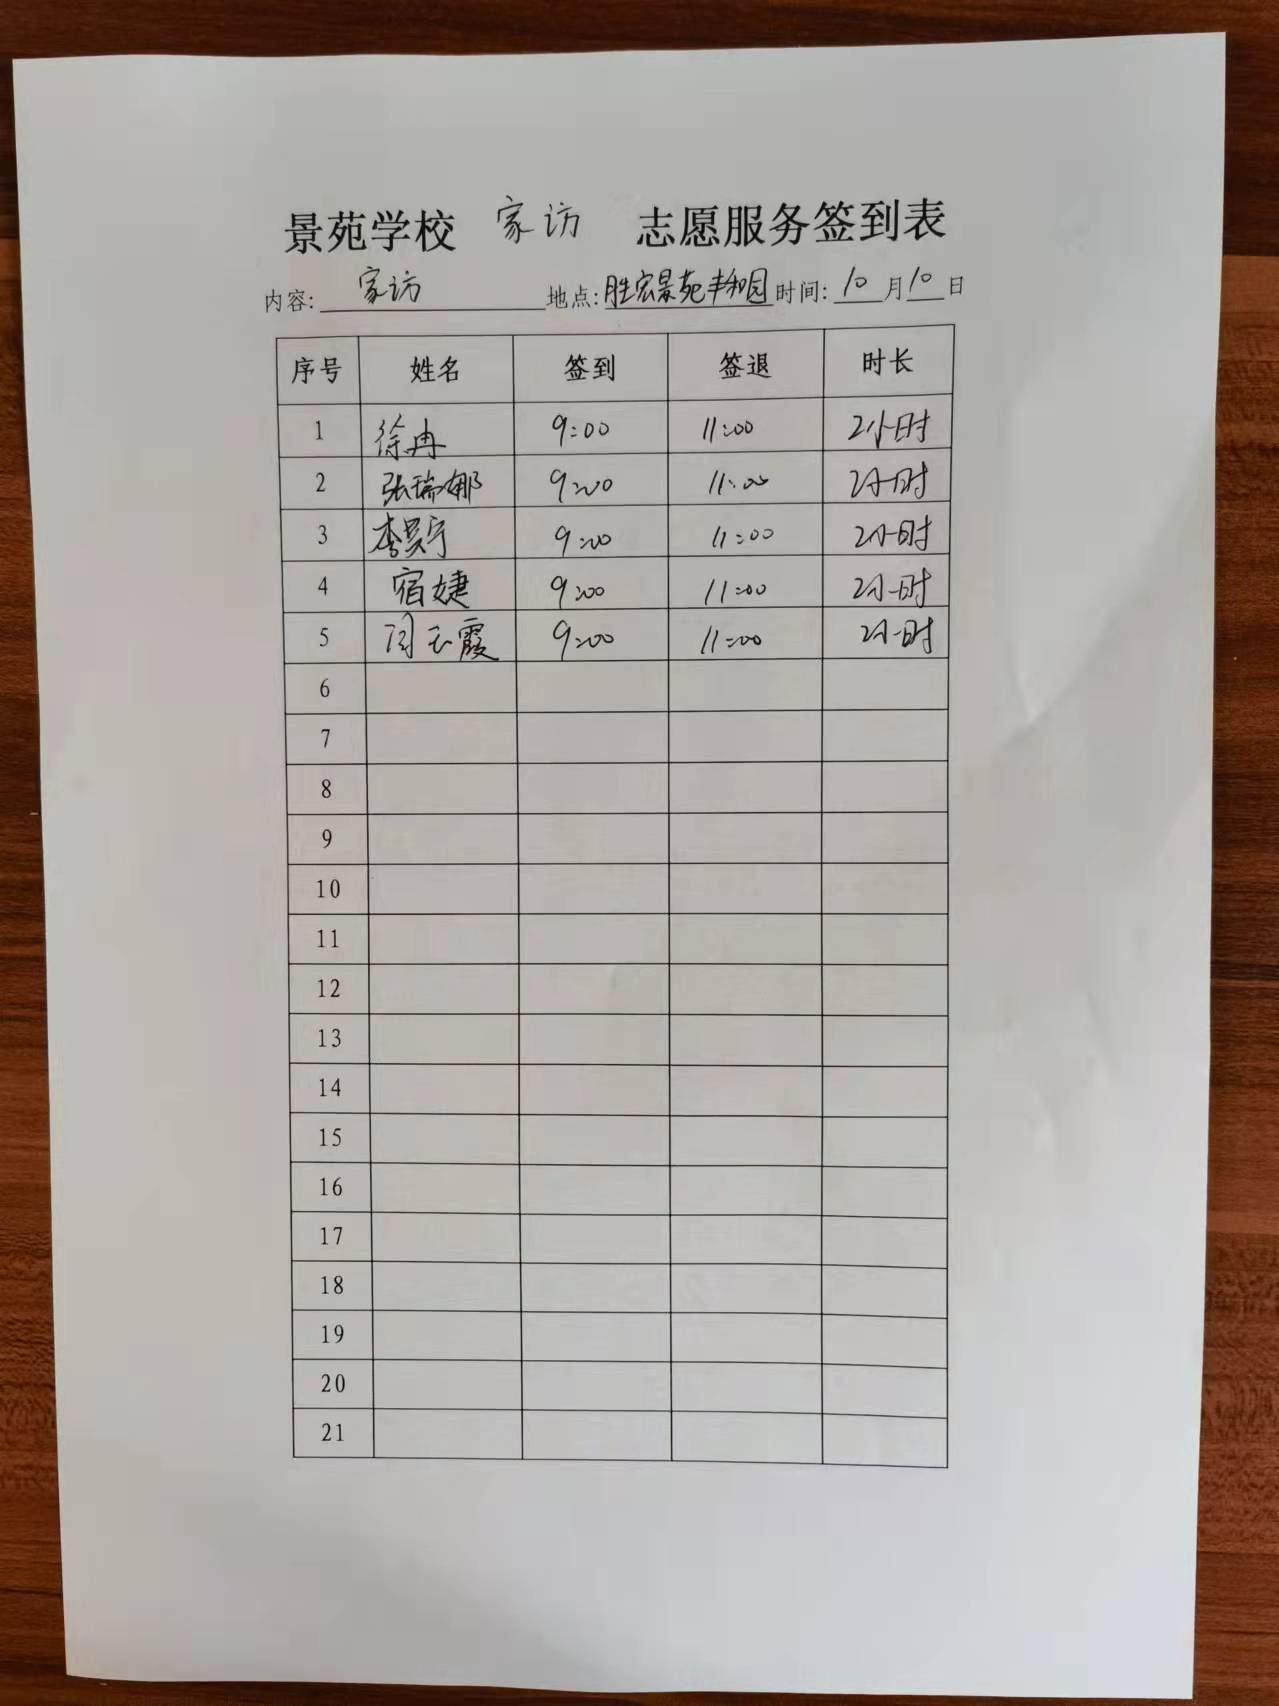 景苑学校 家访 志愿服务签到表
内容: 家访 地点: 胜宏景苑丰和园 时间: 10 月 10 日
序号 姓名 签到 签退 时长
1 徐冉 9:00 11:00 2小时
2 张瑞娜 9:00 11:00 2小时
3 李昊宁 9:00 11:00 2小时
4 宿婕 9:00 11:00 2小时
5 闫玉霞 9:00 11:00 2小时
6
7
8
9
10
11
12
13
14
15
16
17
18
19
20
21